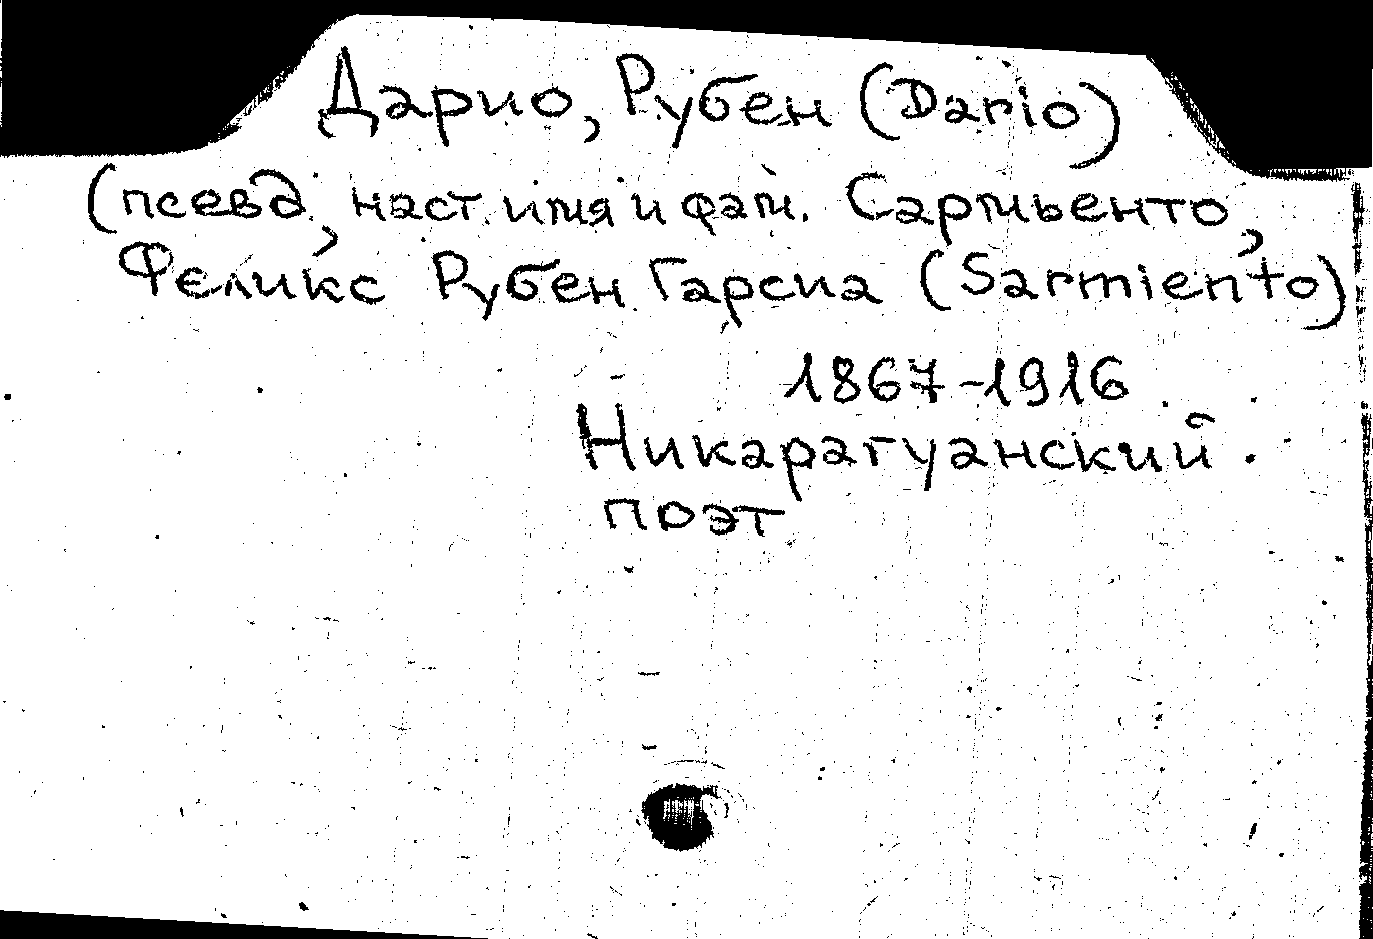 Дарио, Рубен (Dario)
(псевд., наст. имя и фам. Сармьенто,
Феликс Рубен Гарсиа (Sarmiento)
1867-1916
Никарагуанский
поэт